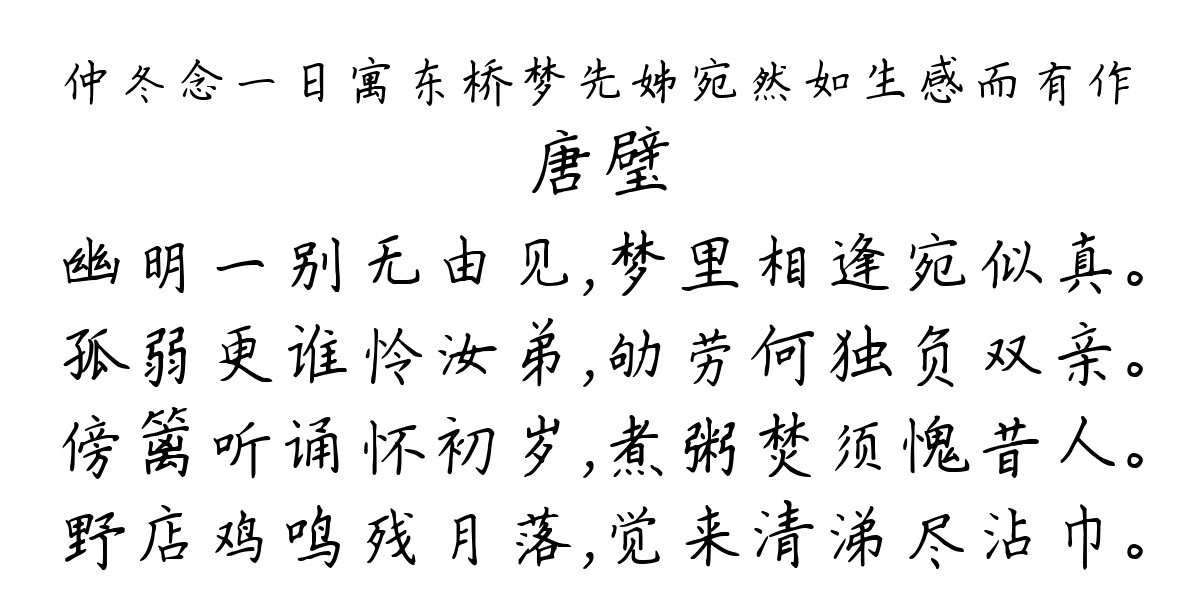 仲冬念一日寓东桥梦先姊宛然如生感而有作
唐璧
幽明一别无由见,梦里相逢宛似真。
孤弱更谁怜汝弟,劬劳何独负双亲。
傍篱听诵怀初岁,煮粥焚须愧昔人。
野店鸡鸣残月落,觉来清涕尽沾巾。